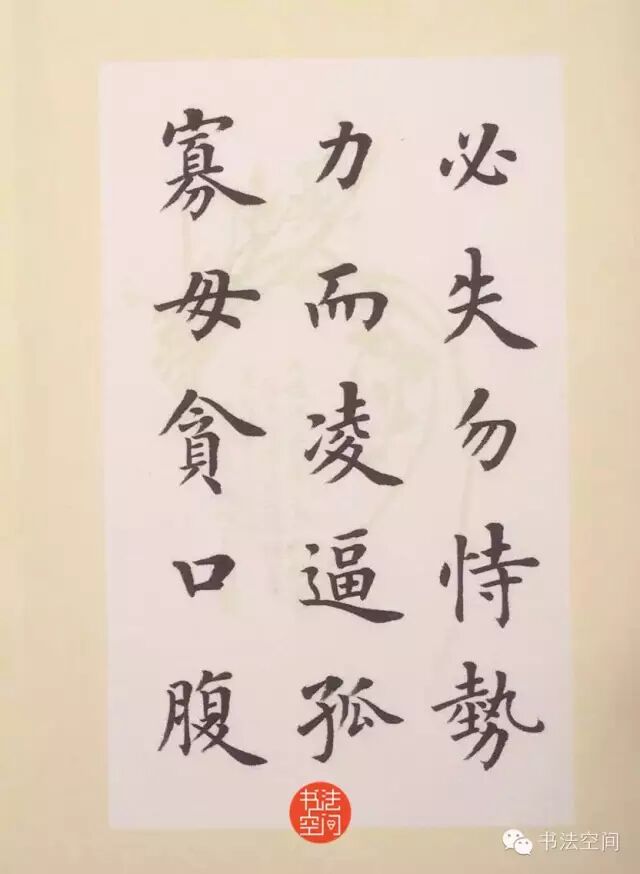 必失勿恃勢
力而凌逼孤
寡毋貪口腹
书法空间
书法空间